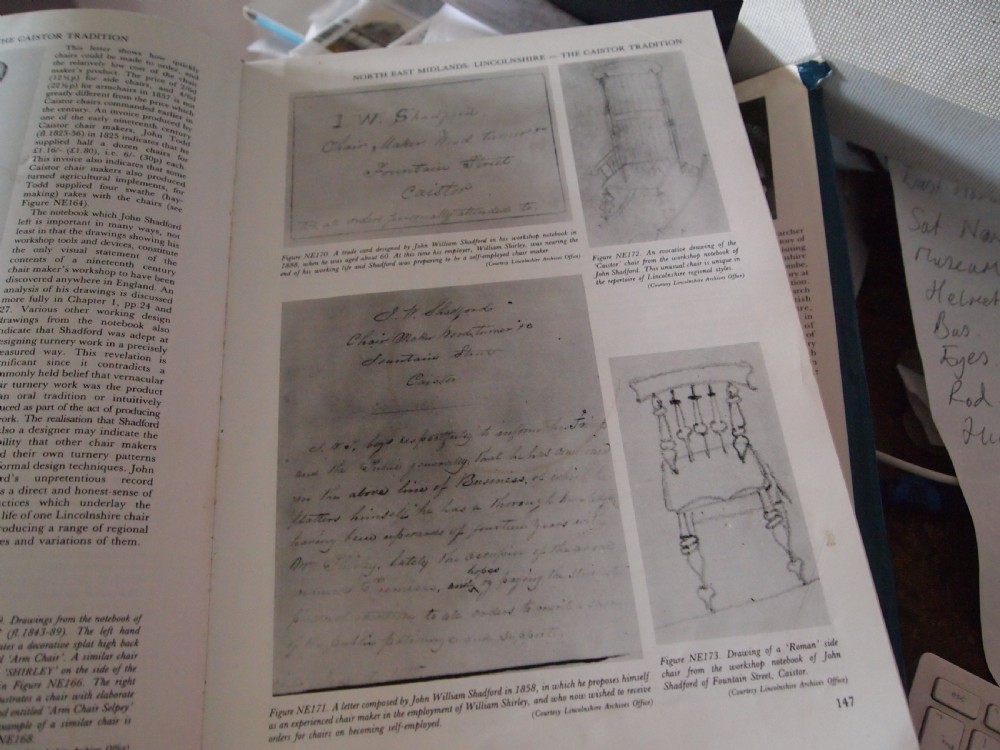 THE CAISTOR TRADITION
This letter shows how quickly
chairs could be made to order, and
the relatively low cost of the chair
maker's product. The price of
(12½p) for side chairs, and
(22½p) for armchairs in 1857 is not
greatly different from the price which
Caistor chairs commanded earlier in
the century. An invoice produced by
one of the early nineteenth century
Caistor chair makers, John Todd
(fl.1825-36) in 1825 indicates that he
supplied half a dozen chairs for
£1.16/- (£1.80), i.e. 6/- (30p) each.
This invoice also indicates that some
Caistor chair makers also produced
turned agricultural implements, for
Todd supplied four swathe (hay-
making) rakes with the chairs (see
Figure NE164).
The notebook which John Shadford
left is important in many ways, not
least in that the drawings showing his
workshop tools and devices, constitute
the only visual statement of the
contents of a nineteenth century
chair maker's workshop to have been
discovered anywhere in England. An
analysis of his drawings is discussed
more fully in Chapter 1, pp.24 and
27. Various other working design
drawings from the notebook also
indicate that Shadford was adept at
designing turnery work in a precisely
easured way. This revelation is
nificant since it contradicts a
mmonly held belief that vernacular
ir turnery work was the product
an oral tradition or intuitively
uced as part of the act of producing
ork. The realisation that Shadford
also a designer may indicate the
bility that other chair makers
d their own turnery patterns
formal design techniques. John
rd's unpretentious record
s a direct and honest sense of
ctices which underlay the
life of one Lincolnshire chair
roducing a range of regional
es and variations of them.
9. Drawings from the notebook of
(fl.1843-89). The left hand
ates a decorative splat high back
d 'Arm Chair'. A similar chair
'SHIRLEY' on the side of the
n Figure NE166. The right
ustrates a chair with elaborate
nd entitled 'Arm Chair Selpey'
xample of a similar chair is
NE168.
Archives Office)
NORTH EAST MIDLANDS: LINCOLNSHIRE — THE CAISTOR TRADITION
J W. Shadford
Chair Maker Wood turner
Fountain Street
Caistor
orders attended to
Figure NE170. A trade card designed by John William Shadford in his workshop notebook in
1858, when he was aged about 60. At this time his employer, William Shirley, was nearing the
end of his working life and Shadford was preparing to be a self-employed chair maker.
(Courtesy Lincolnshire Archives Office)
Figure NE172. An evocative drawing of the
'Caistor' chair from the workshop notebook of
John Shadford. This unusual chair is unique in
the repertoire of Lincolnshire regional styles.
(Courtesy Lincolnshire Archives Office)
J. W. Shadford
Chair Maker
Fountain Street
Caistor
J. W. S. begs respectfully to inform
and the Public generally, that he has
in the above line of Business,
flatters himself he has a thorough
having been upwards of fourteen years with
Shirley, lately the occupier of the above
Premises, and hopes by paying the
to all orders to merit a
of the public patronage and support
Figure NE171. A letter composed by John William Shadford in 1858, in which he proposes himself
as an experienced chair maker in the employment of William Shirley, and who now wished to receive
orders for chairs on becoming self-employed.
(Courtesy Lincolnshire Archives Office)
Figure NE173. Drawing of a 'Roman' side
chair from the workshop notebook of John
Shadford of Fountain Street, Caistor.
(Courtesy Lincolnshire Archives Office)
147
Sat
Museum
Helmet
Bus
Eyes
Rod
esc